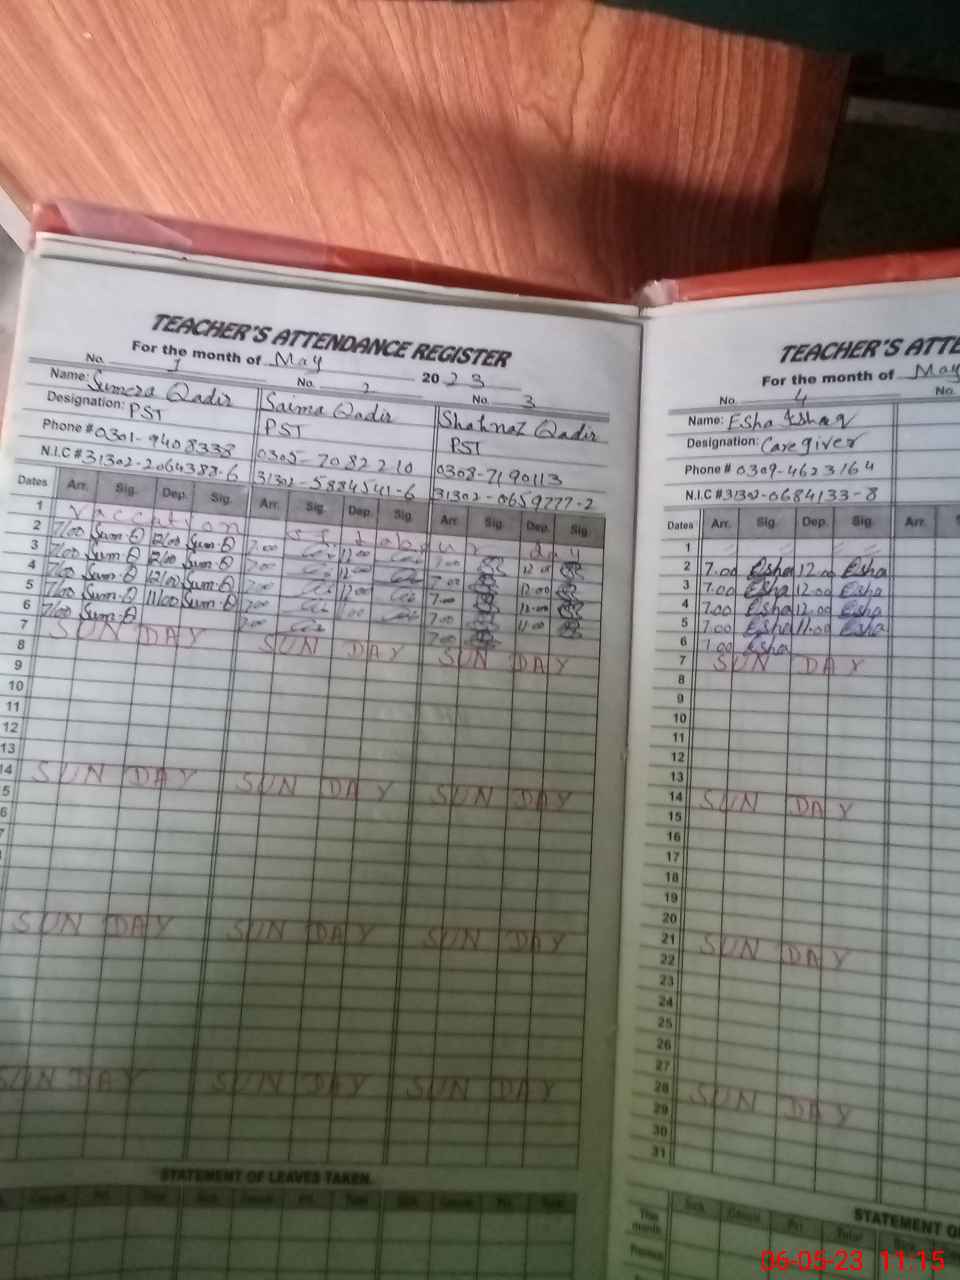 TEACHER'S ATTENDANCE REGISTER
For the month of May 2023
No. 1 No. 2 No. 3
Name: Sumera Qadir Saima Qadir Shahnaz Qadir
Designation: PST PST PST
Phone # 0301-9408338 0305-7082210 0308-7190113
N.I.C # 31302-2064388-6 31302-5884541-6 31302-0659777-2
Dates Arr. Sig. Dep. Sig. Arr. Sig. Dep. Sig. Arr. Sig. Dep. Sig.
1 Vaccation of labour day
2 7/00 Sum-Q 12/00 Sum-Q 7.00 12.00 7.00 12.00
3 7/00 Sum-Q 12/00 Sum-Q 7.00 12.00 7.00 12.00
4 7/00 Sum-Q 12/00 Sum-Q 7.00 12.00 7.00 12.00
5 7/00 Sum-Q 11/00 Sum-Q 7.00 11.00 7.00 11.00
6 7/00 Sum-Q 7.00 7.00
7 SUN DAY SUN DAY SUN DAY
8
9
10
11
12
13
14 SUN DAY SUN DAY SUN DAY
5
6
7
SUN DAY SUN DAY SUN DAY
SUN DAY SUN DAY SUN DAY
STATEMENT OF LEAVES TAKEN.
TEACHER'S ATTE
For the month of May
No. 4 No.
Name: Esha Ishaq
Designation: Care giver
Phone # 0309-4623164
N.I.C # 31302-0684133-8
Dates Arr. Sig. Dep. Sig. Arr.
1
2 7.00 Esha 12.00 Esha
3 7.00 Esha 12.00 Esha
4 7.00 Esha 12.00 Esha
5 7.00 Esha 11.00 Esha
6 7.00 Esha
7 SUN DAY
8
9
10
11
12
13
14 SUN DAY
15
16
17
18
19
20
21 SUN DAY
22
23
24
25
26
27
28 SUN DAY
29
30
31
STATEMENT O
The month
06-05-23 11:15